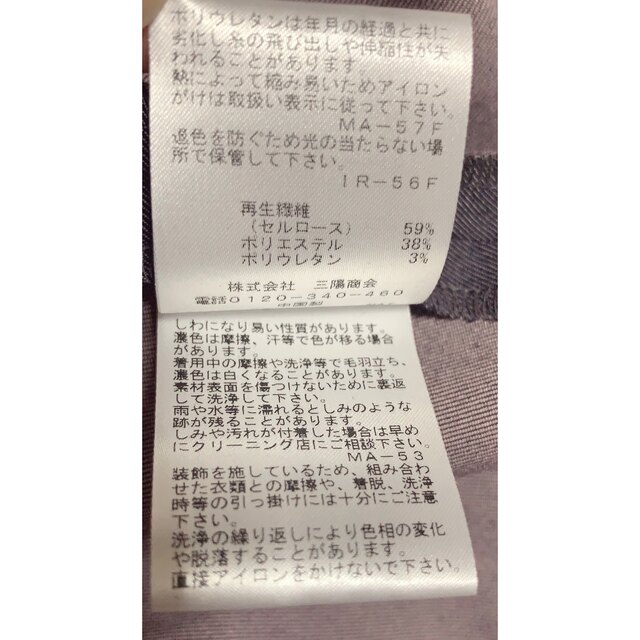 ポリウレタンは年月の経過と共に
劣化し糸の飛び出しや伸縮性が失
われることがあります。
熱によって縮み易いためアイロン
がけは取扱い表示に従って下さい。
MA-57F
退色を防ぐため光の当たらない場
所で保管して下さい。
IR-56F
再生繊維
(セルロース) 59%
ポリエステル 38%
ポリウレタン 3%
株式会社 三陽商会
電話0120-340-460
中国製
しわになり易い性質があります。
濃色は摩擦、汗等で色が移る場合
があります。
着用中の摩擦や洗浄等で毛羽立ち、
濃色は白くなることがあります。
素材表面を傷つけないために裏返
して洗浄して下さい。
雨や水等に濡れるとしみのような
跡が残ることがあります。
しみや汚れが付着した場合は早め
にクリーニング店にご相談下さい。
MA-53
装飾を施しているため、組み合わ
せた衣類との摩擦や、着脱、洗浄
時等の引っ掛けには十分にご注意
下さい。
洗浄の繰り返しにより色相の変化
や脱落することがあります。
直接アイロンをかけないで下さい。